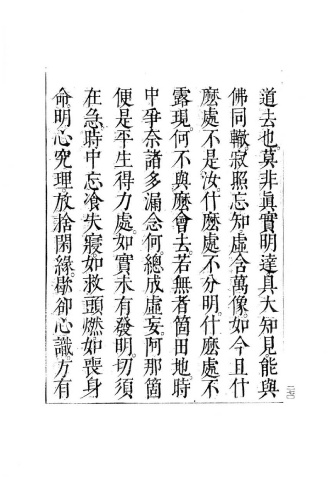 道去也莫非眞實明達具大知見能與
佛同轍寂照忘知虛含萬像如今且什
麽處不是汝什麽處不分明什麽處不
露現何不與麽會去若無者箇田地時
中爭奈諸多漏念何總成虛妄阿那箇
便是平生得力處如實未有發明切須
在急時中忘飡失寢如救頭燃如喪身
命明心究理放捨閑緣歇卻心識方有